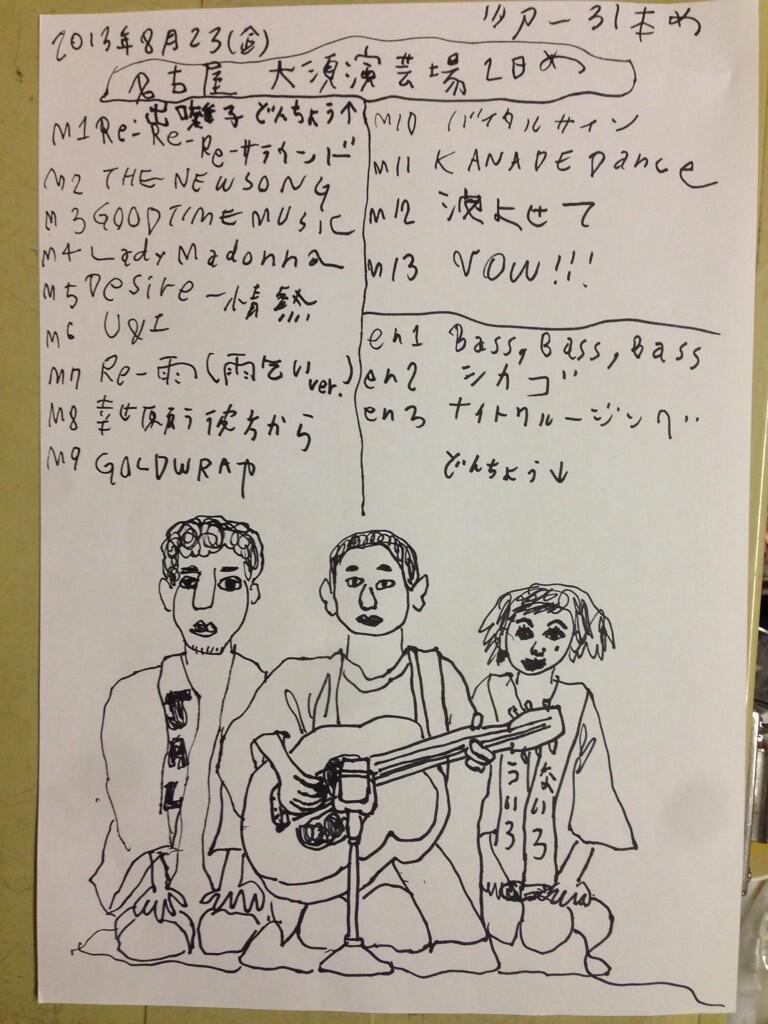 2013年8月23(金)
ツアー31本め
名古屋 大須演芸場2日め
出囃子 どんちょう↑
M1 Re:Re-Re-Re-サラインド
M2 THE NEW SONG
M3 GOOD TIME MUSIC
M4 Lady Madonna
M5 Desire-情熱
M6 U&I
M7 Re-雨(雨乞いver.)
M8 幸せ願う彼方から
M9 GOLDWRAP
M10 バイタルサイン
M11 KANADE Dance
M12 波よせて
M13 VOW!!!
en1 Bass, Bass, Bass
en2 シカゴ
en3 ナイトクルージング
どんちょう↓
JAL
ないろ
ういろ